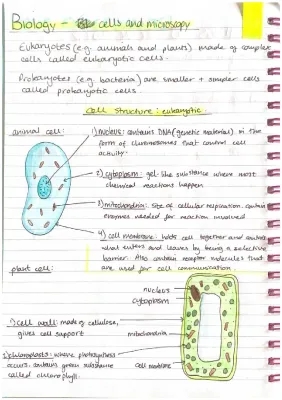 Biology - cells and microscopy
Eukaryotes (e.g. animals and plants) made of complex
cells called eukaryotic cells.
Prokaryotes (e.g. bacteria) are smaller + simpler cells
called prokaryotic cells
Cell structure: eukaryotic
animal cell:
1) nucleus: contains DNA (genetic material) in the
form of chromosomes that control cell
activity.
2) cytoplasm: gel-like substance where most
chemical reactions happen
3) mitochondria: site of cellular respiration, contain
enzymes needed for reaction involved
4) cell membrane: holds cell together and
what enters and leaves by being a selective
barrier. Also contain receptor molecules that
are used for cell communication.
plant cell:
nucleus
cytoplasm
1) cell wall: made of cellulose,
gives cell support
mitochondria
2) chloroplasts: where photosynthesis
occurs, contains green substance
called chlorophyll.
cell membrane